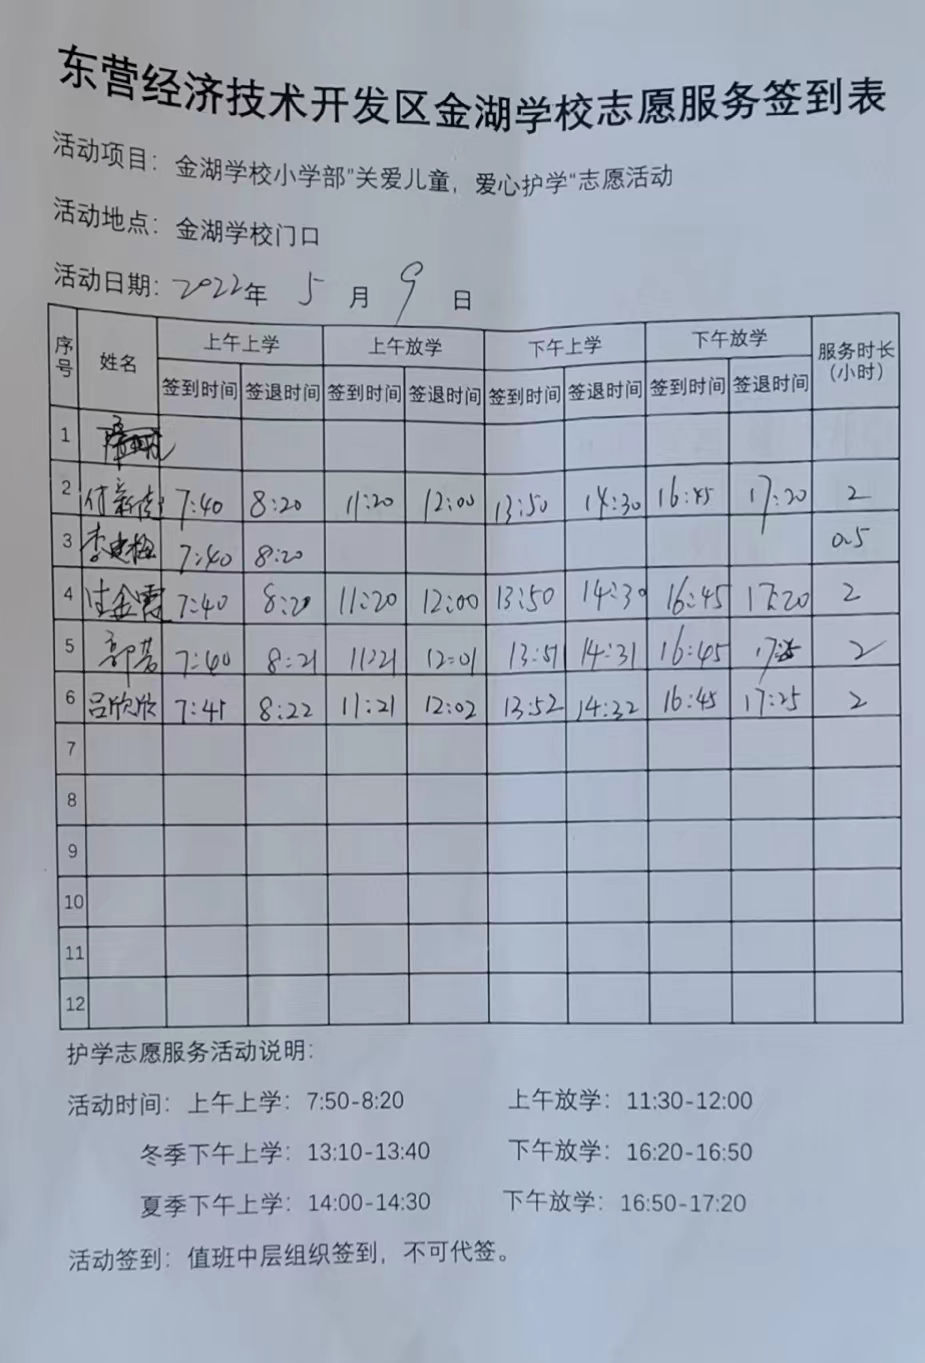 东营经济技术开发区金湖学校志愿服务签到表
活动项目：金湖学校小学部"关爱儿童，爱心护学"志愿活动
活动地点：金湖学校门口
活动日期：2022年 5 月 9 日
序号 姓名 上午上学 上午放学 下午上学 下午放学 服务时长（小时）
签到时间 签退时间 签到时间 签退时间 签到时间 签退时间 签到时间 签退时间
1
2 7:40 8:20 11:20 12:00 13:50 14:30 16:45 17:20 2
3 7:40 8:20 0.5
4 7:40 8:20 11:20 12:00 13:50 14:30 16:45 17:20 2
5 郭芳 7:40 8:21 11:21 12:01 13:51 14:31 16:45 2
6 吕欣欣 7:41 8:22 11:21 12:02 13:52 14:32 16:45 17:25 2
7
8
9
10
11
12
护学志愿服务活动说明：
活动时间：上午上学：7:50-8:20 上午放学：11:30-12:00
冬季下午上学：13:10-13:40 下午放学：16:20-16:50
夏季下午上学：14:00-14:30 下午放学：16:50-17:20
活动签到：值班中层组织签到，不可代签。